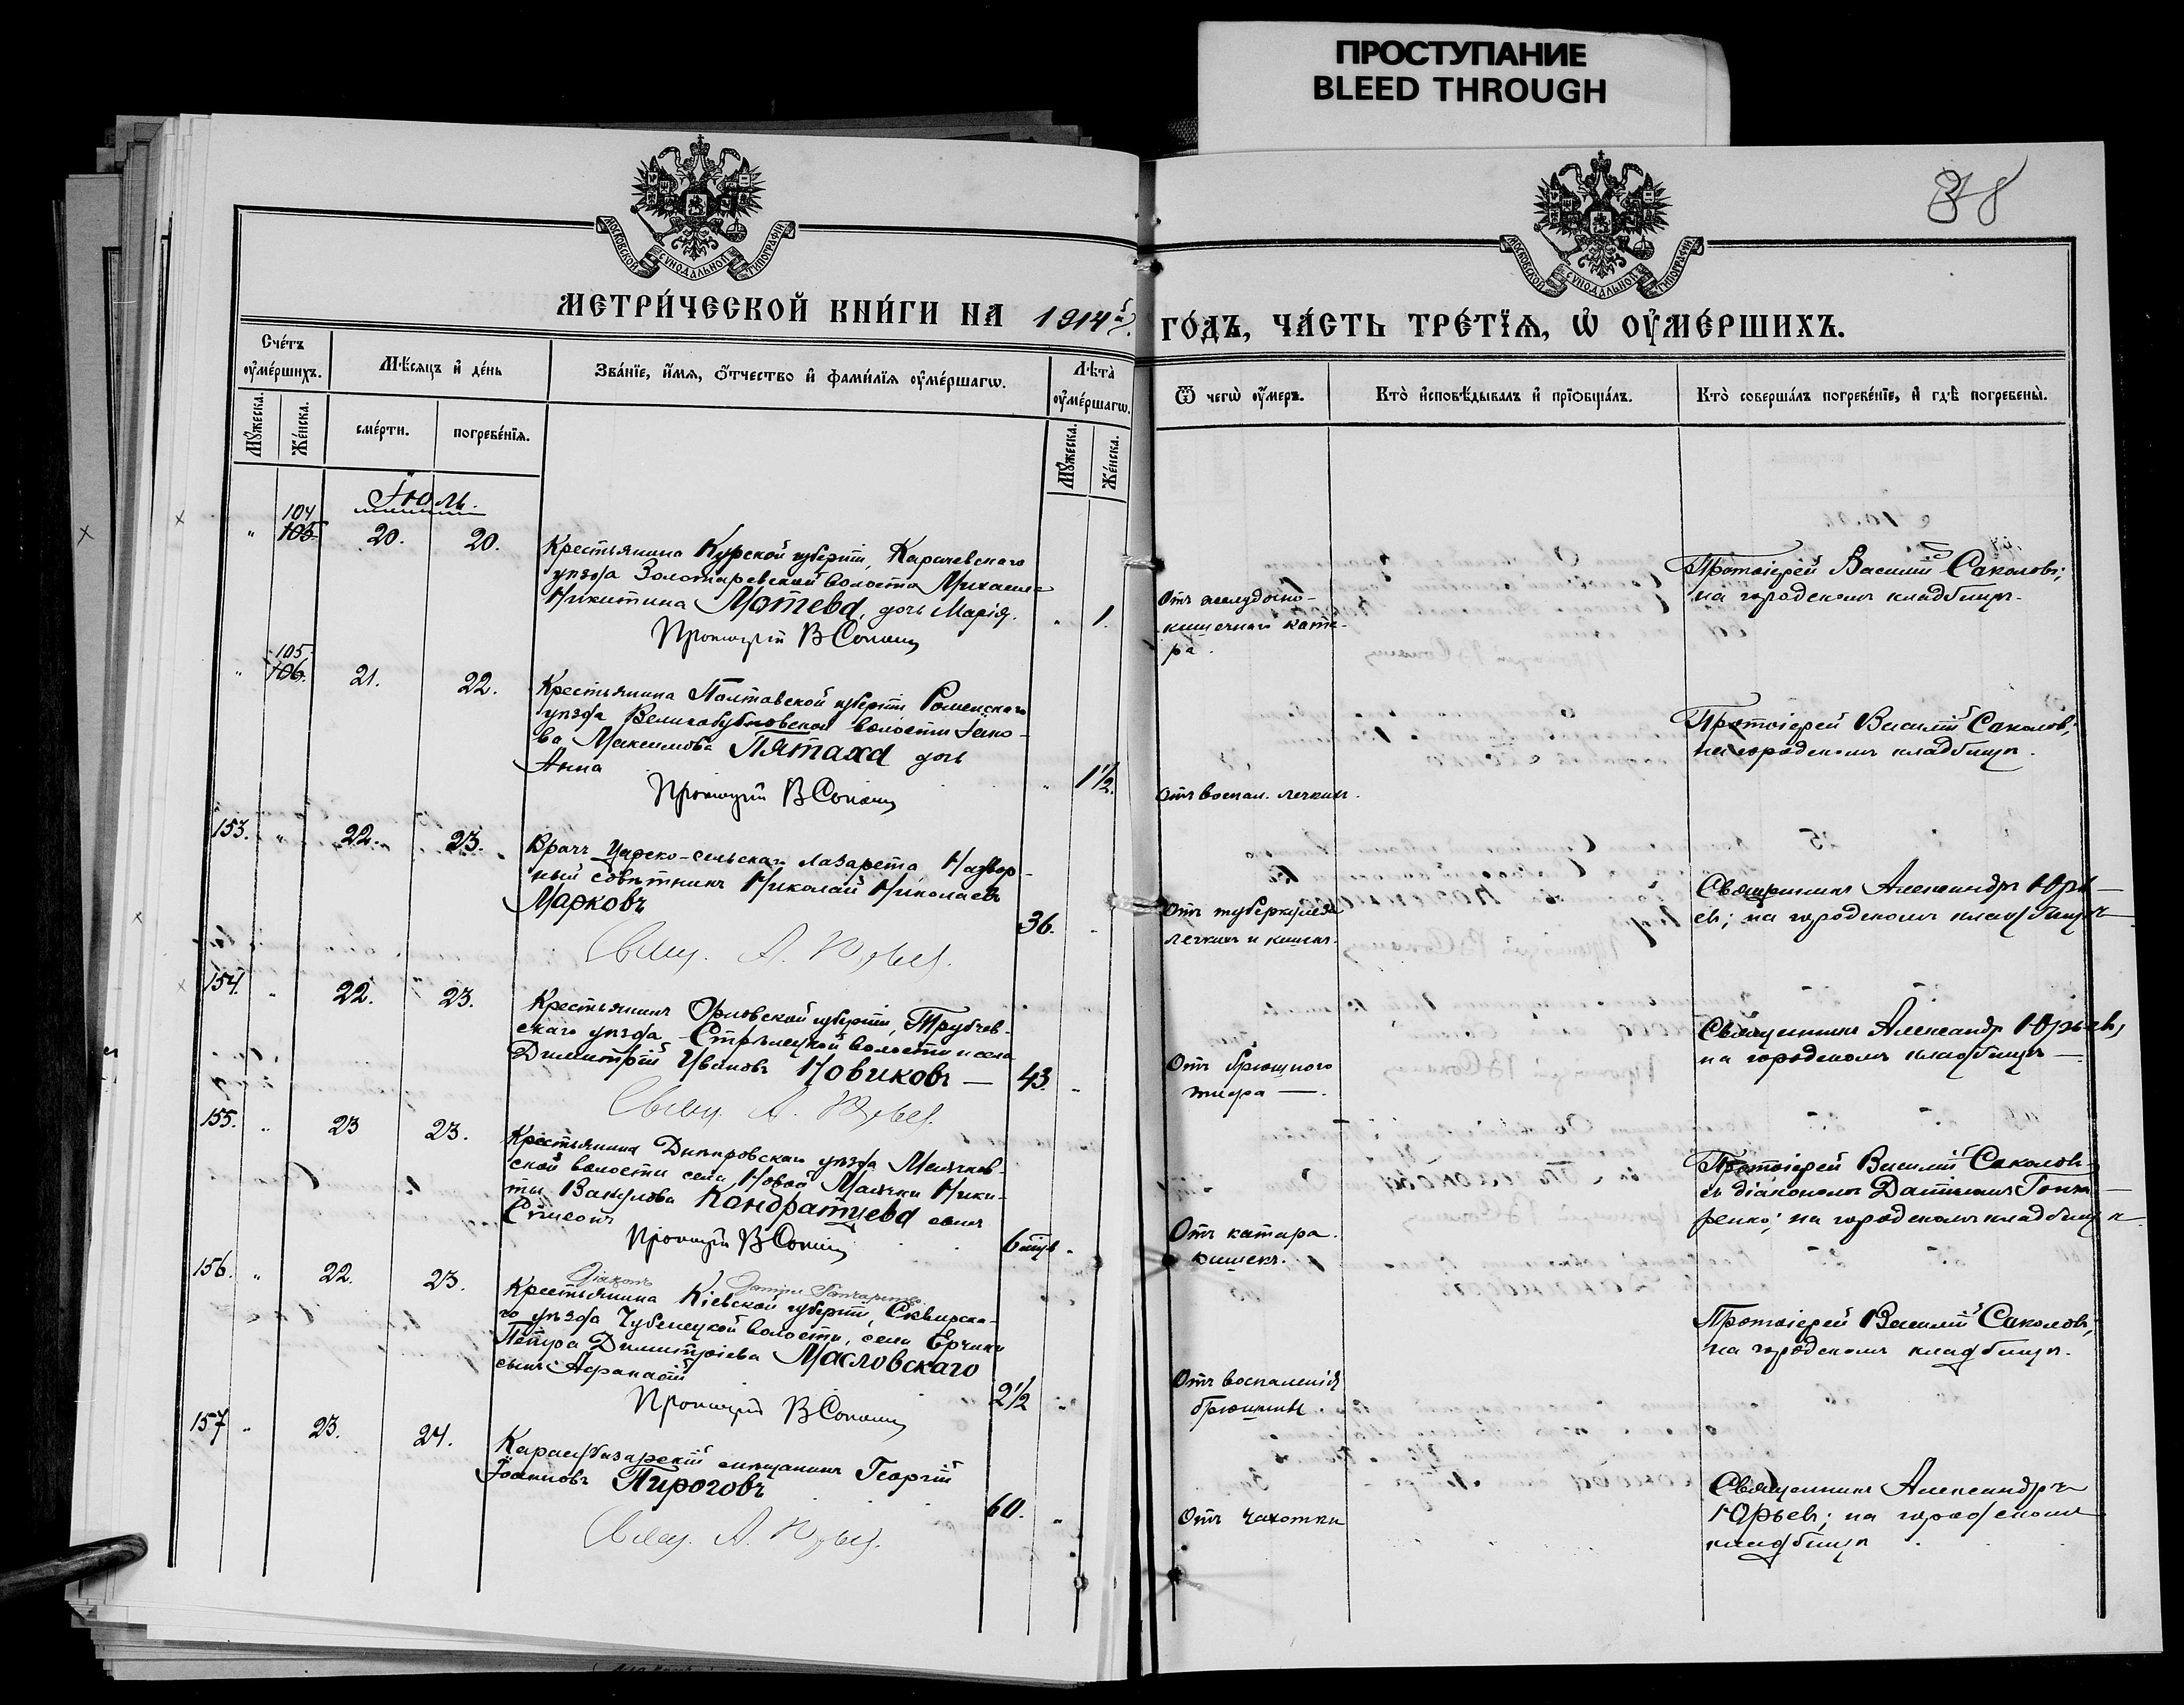 ПРОСТУПАНИЕ
BLEED THROUGH
38
МОСКОВСКОЙ СѴНОДАЛЬНОЙ ТИПОГРАФІИ
МОСКОВСКОЙ СѴНОДАЛЬНОЙ ТИПОГРАФІИ
МЕТРИ́ЧЕСКОЙ КНИ́ГИ НА 1914й
ГО́ДЪ, ЧА́СТЬ ТРЕ́ТЇѦ, Ѡ ОУ҆МЕ́РШИХЪ.
Сче́тъ оу҆ме́ршихъ.
Мѣ́сяцъ и҆ де́нь
Зва́нїе, и҆́мѧ, ѻ҆́тчество и҆ фами́лїѧ оу҆ме́ршагѡ.
Лѣта̀ оу҆ме́ршагѡ.
Ѿ чегѡ̀ оу҆́меръ.
Кто̀ и҆сповѣ́дывалъ и҆ прїѡбща́лъ.
Кто̀ соверша́лъ погребе́нїе, и҆ гдѣ̀ погребены̀.
Мꙋ́жеска.
Же́нска.
сме́рти.
погребе́нїѧ.
Мꙋ́жеска.
Же́нска.
Іюль.
104
" 105 20. 20.
Крестьянина Курской губерніи, Карачевскаго
уѣзда Золотаревской волости Михаила
Никитина Мотева, дочь Марія.
" 1.
Протоіерей В Соколов
Отъ желудочно-
кишечнаго ката-
ра.
Протоіерей Василій Соколовъ;
на городскомъ кладбищѣ.
105
" 106. 21. 22.
Крестьянина Полтавской губерніи Роменскаго
уѣзда Великобубновской волости Іако-
ва Максимова Пятаха дочь
Анна
" 1½.
Протоіерей В Соколов
Отъ воспал. легкихъ.
Протоіерей Василій Соколовъ;
на городскомъ кладбищѣ.
153. " 22. 23.
Врачъ Царско-сельскаго лазарета Надвор-
ный совѣтникъ Николай Николаевъ
Марковъ
36. "
Свящ. А. Юрьев.
Отъ туберкулеза
легкихъ и кишекъ.
Священникъ Александръ Юрь-
евъ; на городскомъ кладбищѣ
154. " 22. 23.
Крестьянинъ Орловской губерніи, Трубчев-
скаго уѣзда Стрѣлецкой волости и села
Димитрій Ивановъ Новиковъ —
43. "
Свящ. А. Юрьев.
Отъ брюшного
тифа —.
Священникъ Александр Юрьевъ,
на городскомъ кладбищѣ —
155. " 23 23.
Крестьянина Днѣпровскаго уѣзда Маячков-
ской волости села Новой Маячки Ники-
ты Вакулова Кондратцева сынъ
Сѵмеонъ
6 мѣс. "
Протоіерей В Соколов
Діаконъ Даміанъ Гончаренко
Отъ катара
кишекъ.
Протоіерей Василій Соколовъ
съ діакономъ Даміаномъ Гонча-
ренко; на городскомъ кладбищѣ
156. " 22. 23.
Крестьянина Кіевской губерніи, Сквирска-
го уѣзда Чубинецкой волости, села Ерчики
Петра Димитріева Масловскаго
сынъ Аѳанасій
2½ "
Протоіерей В Соколов
Отъ воспаленія
брюшины.
Протоіерей Василій Соколовъ;
на городскомъ кладбищѣ.
157 " 23. 24.
Карасубазарскій мѣщанинъ Георгій
Іоанновъ Пироговъ
60. "
Свящ. А. Юрьев.
Отъ чахотки
Священникъ Александръ
Юрьевъ; на городскомъ
кладбищѣ